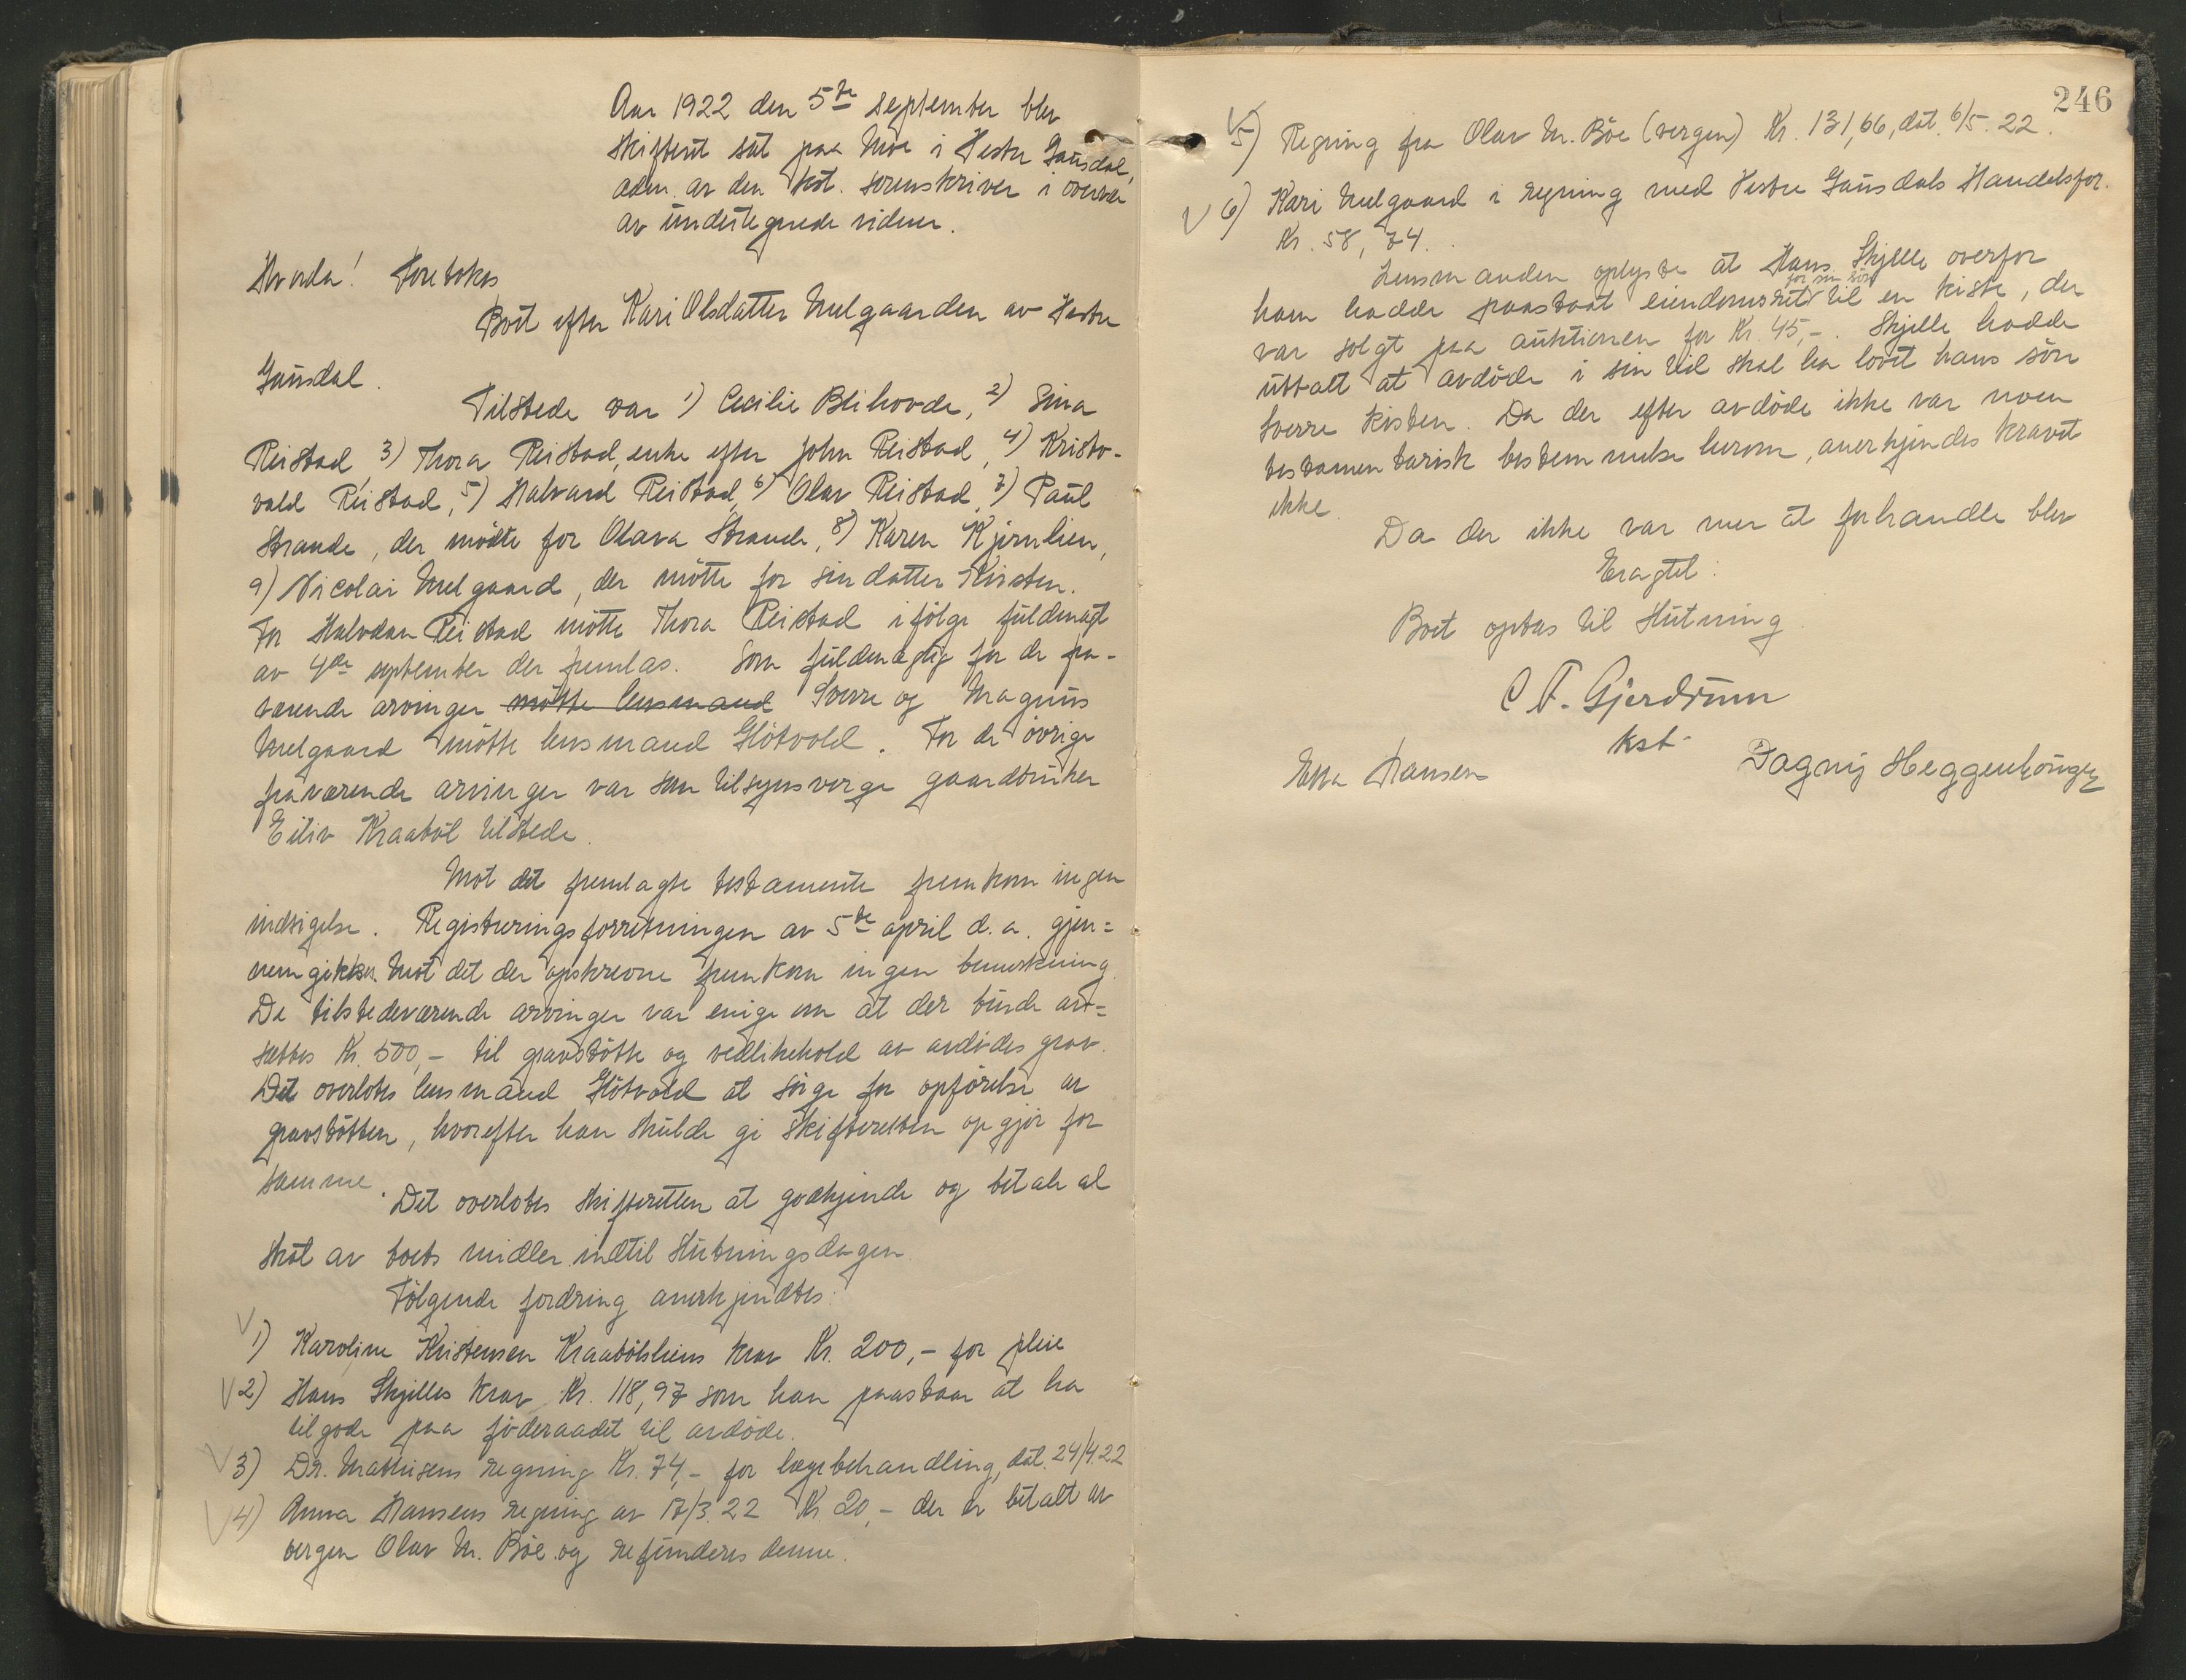 Aar 1922 den 5te september blev
skifteret sat paa Moe i Vestre Gausdal,
adm. av den kst. sorenskriver i overvær
av undertegnede vidner.
Hvorda! Foretokes
Boet efter Kari Olsdatter Melgaarden av Vestre
Gausdal.
Tilstede var 1) Cecilie Blihovde, 2) Sina
Reistad 3) Thora Reistad, enke efter John Reistad, 4) Kristo-
vald Reistad, 5) Halvard Reistad, 6) Olav Reistad, 7) Paul
Strande, der mødte for Olava Strande, 8) Karen Kjernlien,
9) Nicolai Melgaard, der møtte for sin datter Kirsten.
For Halvdan Reistad møtte Thora Reistad ifølge fuldmagt
av 4de september der fremlas. Som fuldmægtig for de fra-
værende arvinger møtte lensmand Sverre og Magnus
Melgaard møtte lensmand Fløtvold. For de øvrige
fraværende arvinger var som tilsynsverge gaardbruker
Eiliv Kraabøl tilstede.
Mot det fremlagte testamente fremkom ingen
indsigelse. Registreringsforretningen av 5te april d.a. gjen=
nemgikkes. Mot det der opskrevne fremkom ingen bemerkning.
De tilstedeværende arvinger var enige om at der burde av=
sættes Kr. 500,- til gravstøtte og vedlikehold av avdødes grav.
Det overlotes lensmand Fløtvold at sørge for opførelse av
gravstøtten, hvorefter han skulde gi skifteretten opgjør for
samme.
Det overlotes skifteretten at godkjende og betale al
skat av boets midler indtil slutningsdagen.
Følgende fordring anerkjendtes:
V 1) Karoline Kristensen Kraabølsliens krav Kr. 200,- for pleie
V 2) Hans Skjelles krav Kr. 118,97 som han paastaar at ha
tilgode paa føderaadet til avdøde.
V 3) Dr. Mathisens regning Kr. 74,- for lægebehandling, dat. 24/4.22
V 4) Anna Hansens regning av 17/3.22 Kr 20,- der er betalt av
vergen Olav M. Bøe og refunderes denne.
246
V 5) Regning fra Olav M. Bøe (vergen) Kr. 131,66, dat. 6/5. 22.
V 6) Kari Melgaard i regning med Vestre Gausdals Handelsfor.
Kr. 58, 74.
Lensmanden oplyste at Hans Skjelle overfor
ham hadde paastaat eiendomsret for sin søn til en kiste, der
var solgt paa auktionen for Kr. 45,-. Skjelle hadde
uttalt at avdøde i sin tid skal ha lovet hans søn
Sverre kisten. Da der efter avdøde ikke var noen
testamentarisk bestemmelse herom, anerkjendes kravet
ikke.
Da der ikke var mer at forhandle blev
Eragtet:
Boet optas til slutning.
C F. Gjerdrum
kst.
Essa Hansen
Dagny Heggenhougen